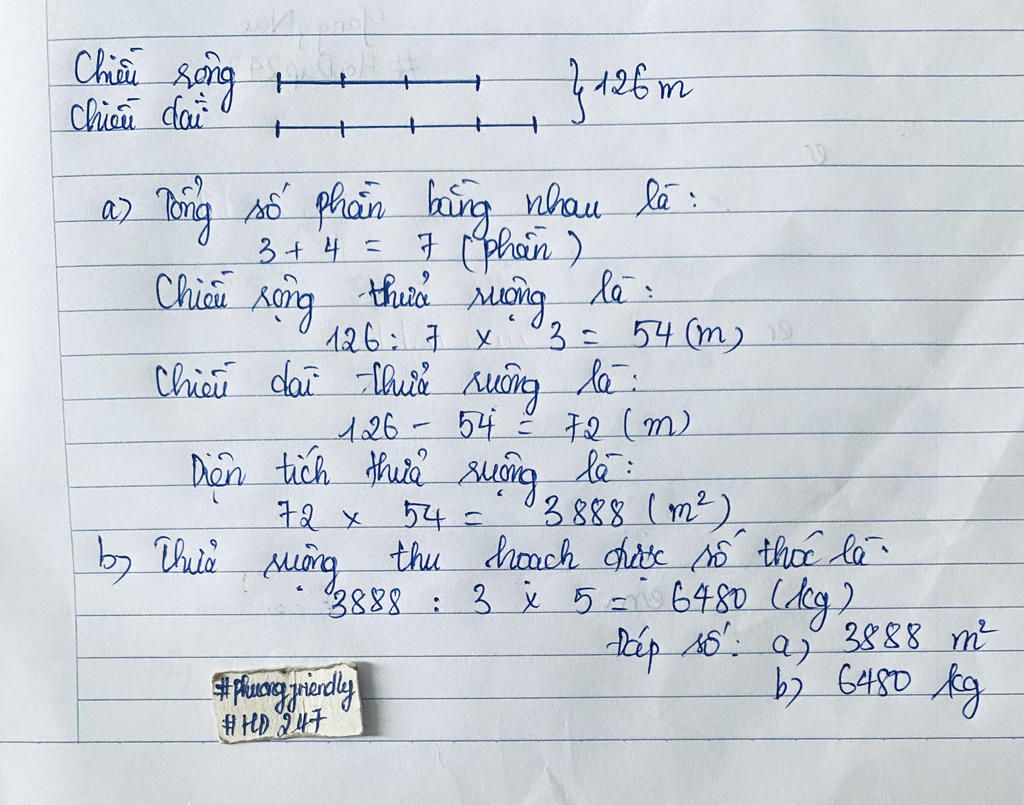 Chiều rộng
} 126 m
Chiều dài
a) Tổng số phần bằng nhau là:
3 + 4 = 7 (phần)
Chiều rộng thửa ruộng là:
126 : 7 x 3 = 54 (m)
Chiều dài thửa ruộng là:
126 - 54 = 72 (m)
Diện tích thửa ruộng là:
72 x 54 = 3888 (m²)
b) Thửa ruộng thu hoạch được số thóc là:
3888 : 3 x 5 = 6480 (kg)
Đáp số: a) 3888 m²
b) 6480 kg
#phuongfriendly
#HD 247